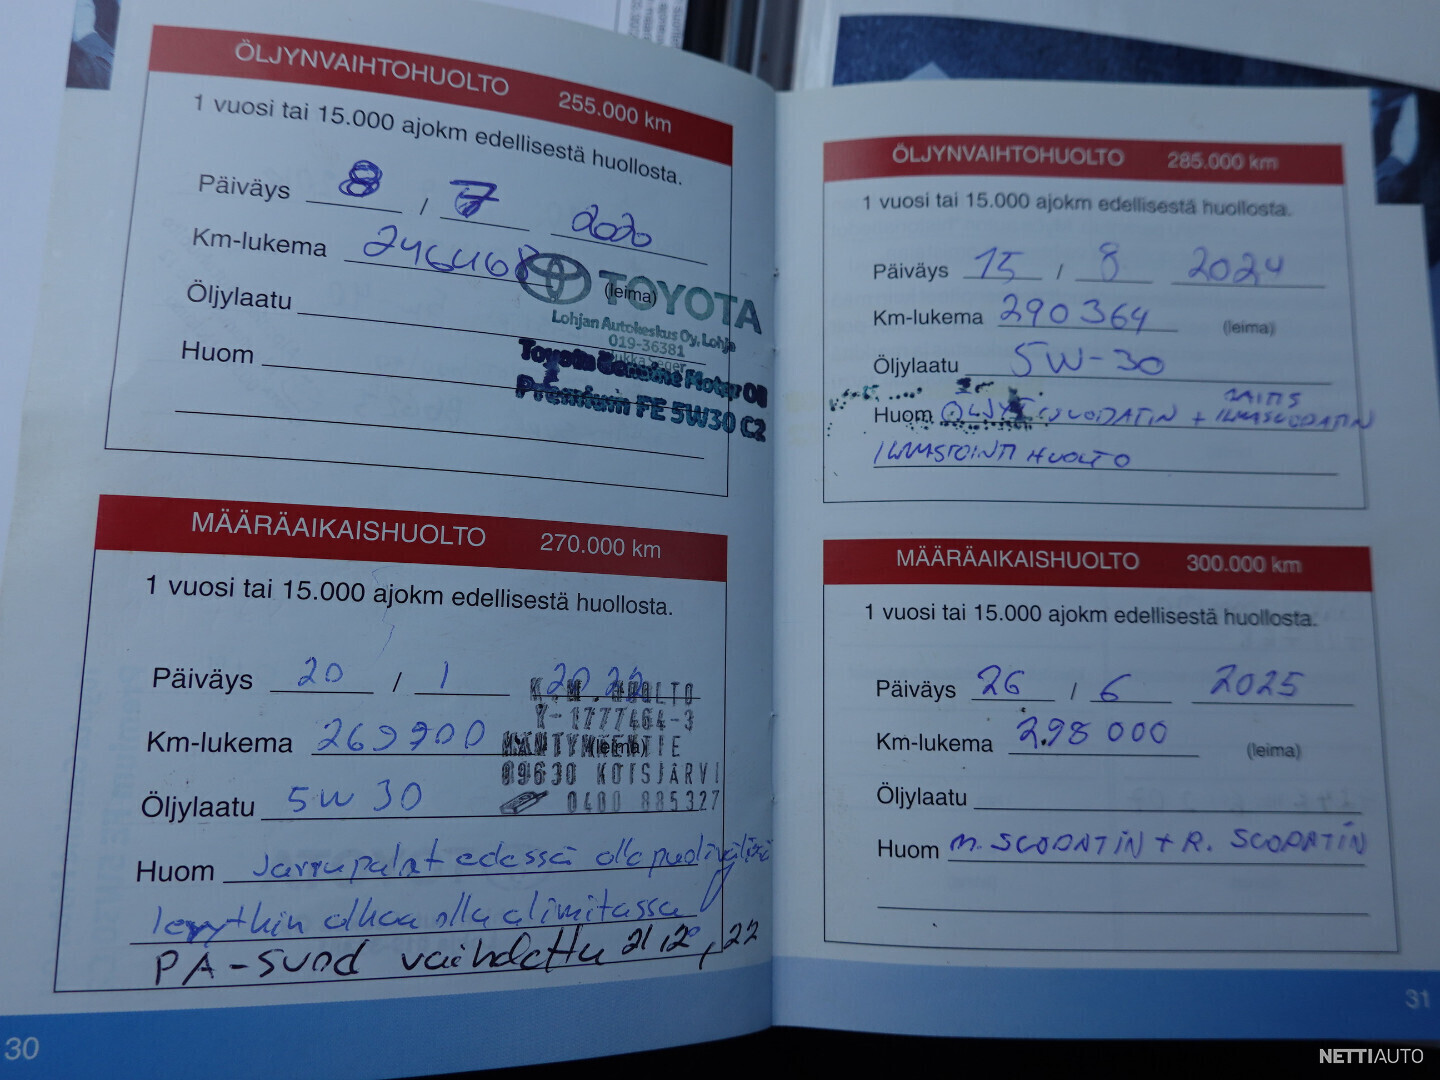 ÖLJYNVAIHTOHUOLTO 255.000 km
1 vuosi tai 15.000 ajokm edellisestä huollosta.
Päiväys 8 / 7 2020
Km-lukema 246468
Öljylaatu (leima)
TOYOTA
Lohjan Autokeskus Oy, Lohja
019-36381
Huom
Toyota Genuine Motor Oil
Premium FE 5W30 C2
MÄÄRÄAIKAISHUOLTO 270.000 km
1 vuosi tai 15.000 ajokm edellisestä huollosta.
Päiväys 20 / 1 2022
K.M. HUOLTO
Y-1777464-3
Km-lukema 269900 (leima)
09630 KOISJÄRVI
Öljylaatu 5W30 0400 885327
Huom Jarrupalat edessä alle puolivälissä
levytkin alkaa olla alimitassa
PA-suod vaihdettu
30
ÖLJYNVAIHTOHUOLTO 285.000 km
1 vuosi tai 15.000 ajokm edellisestä huollosta.
Päiväys 15 / 8 2024
Km-lukema 290364 (leima)
Öljylaatu 5W-30
Huom ÖLJYNSUODATIN + RAITIS ILMASUODATIN
ILMASTOINTI HUOLTO
MÄÄRÄAIKAISHUOLTO 300.000 km
1 vuosi tai 15.000 ajokm edellisestä huollosta.
Päiväys 26 / 6 2025
Km-lukema 298 000 (leima)
Öljylaatu
Huom M. SUODATIN + R. SUODATIN
31
NETTIAUTO